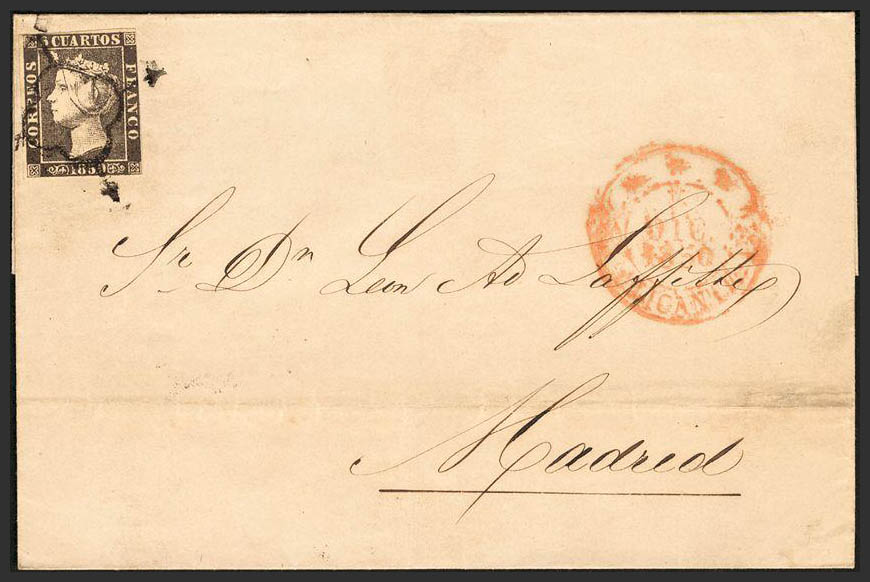 6 CUARTOS
CORREOS
FRANCO
1850
Sr. Dn Leon Ad Laffitte
Madrid